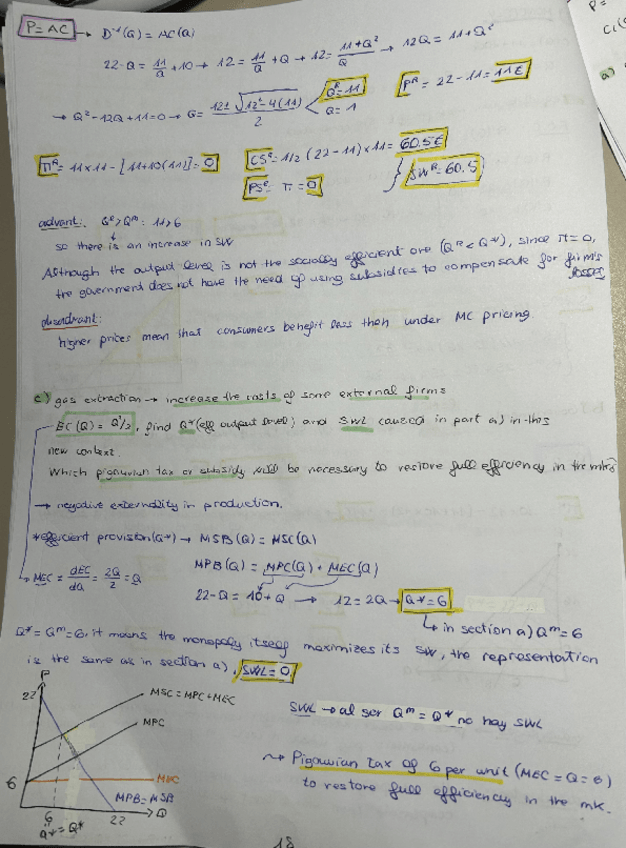 P=AC → D⁻¹(Q) = AC(Q)
22-Q = 11/Q + 10 → 12 = 11/Q + Q → 12 = 11+Q²/Q → 12Q = 11+Q²
→ Q²-12Q+11=0 → Q = 12±√12²-4(11)/2 < Qᴿ=11 Q=1
Pᴿ = 22-11 = 11€
πᴿ = 11x11 - [11+10(11)] = 0
CSᴿ = 1/2 (22-11)x11 = 60.5€
PSᴿ = π = 0
} SWᴿ = 60.5
advant.: Qᴿ > Qᵐ : 11 > 6
so there is an increase in SW
Although the output level is not the socially efficient one (Qᴿ < Q*), since π = 0,
the government does not have the need of using subsidies to compensate for firm's losses
disadvant:
higher prices mean that consumers benefit less then under MC pricing.
c) gas extraction → increase the costs of some external firms
EC(Q) = Q²/2, find Q* (eff output level) and SWL caused in part a) in this
new context.
Which pigouvian tax or subsidy will be necessary to restore full efficiency in the mkt?
→ negative externality in production.
*efficient provision (Q*) → MSB(Q) = MSC(Q)
MPB(Q) = MPC(Q) + MEC(Q)
→ MEC = dEC/dQ = 2Q/2 = Q
22-Q = 10+Q → 12=2Q → Q*=6
↳ in section a) Qᵐ=6
Q* = Qᵐ = 6, it means the monopoly itself maximizes its SW, the representation
is the same as in section a), SWL = 0
P
22
MSC = MPC+MEC
MPC
6
MPB=MSB
6
22
Q
Qᵐ = Q*
SWL → al ser Qᵐ = Q* no hay SWL
↝ Pigouvian tax of 6 per unit (MEC = Q = 6)
to restore full efficiency in the mk.
18